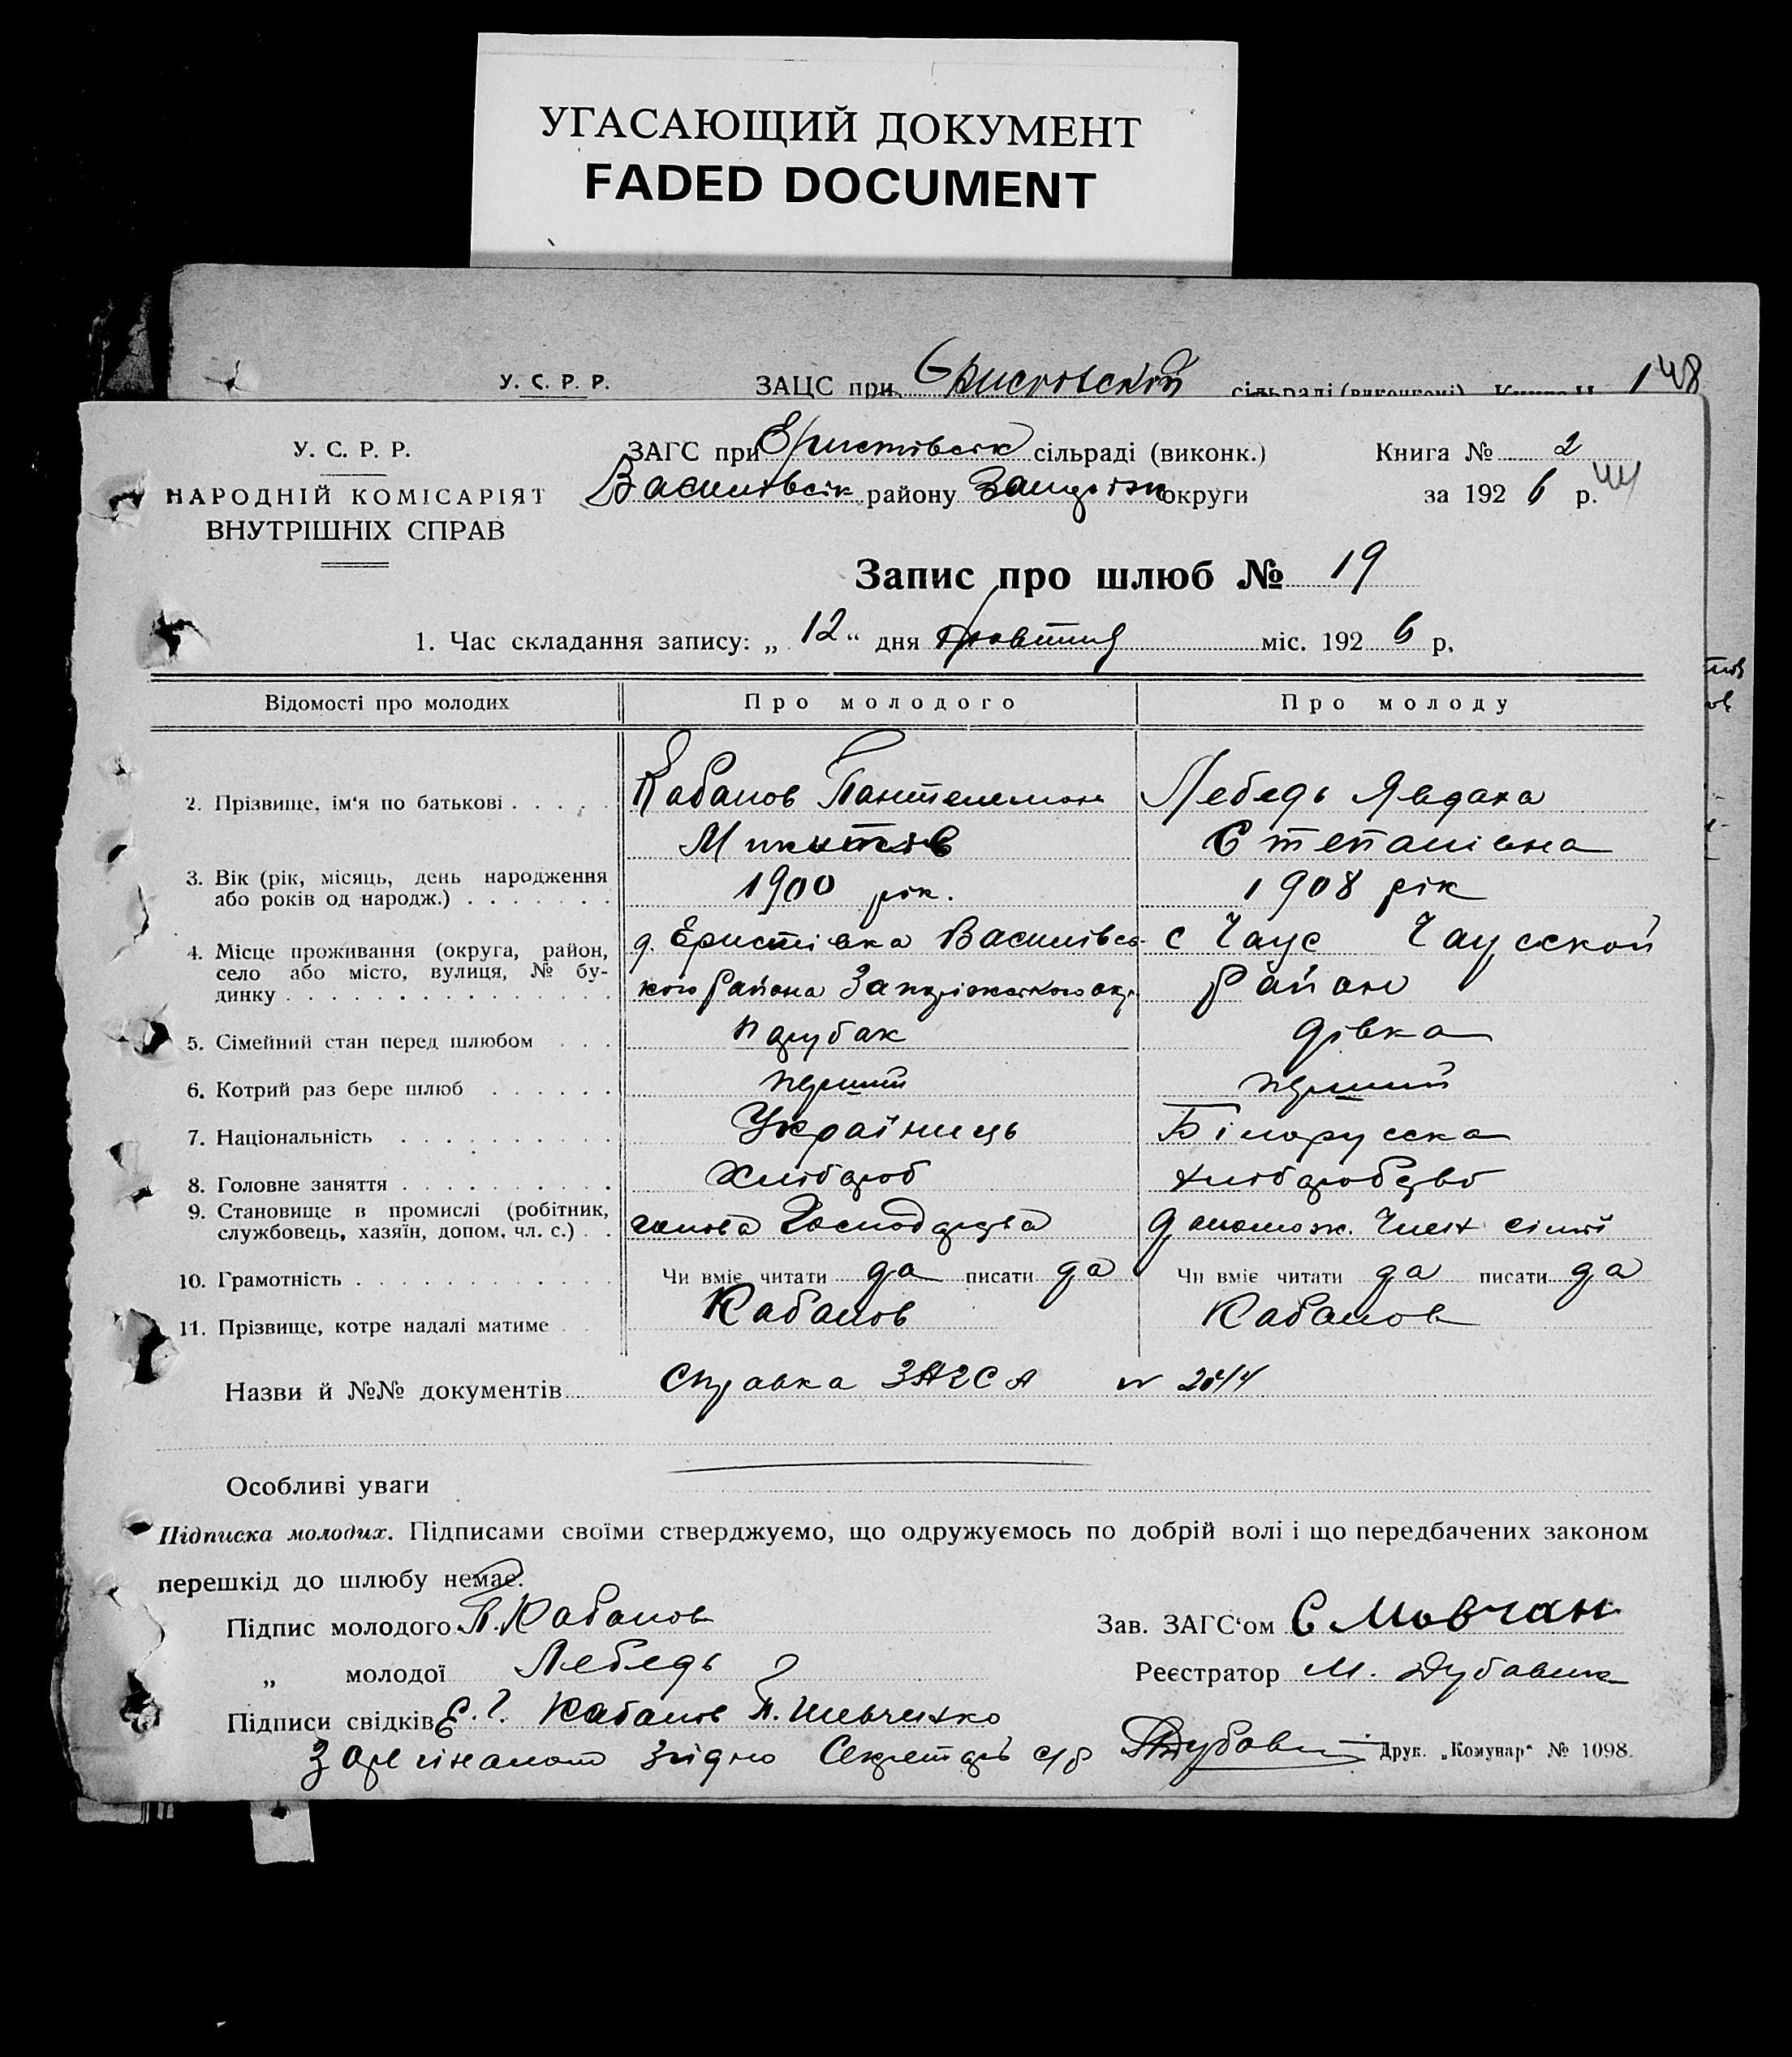 УГАСАЮЩИЙ ДОКУМЕНТ
FADED DOCUMENT
У. С. Р. Р. ЗАЦС при сільраді (виконкомі) 148
У. С. Р. Р.
НАРОДНІЙ КОМІСАРІЯТ
ВНУТРІШНІХ СПРАВ
ЗАГС при Еристівськ сільраді (виконк.) Книга № 2
Василівськ району Запоріжк округи за 1926 р.
Запис про шлюб № 19
1. Час складання запису: „ 12 “ дня Жовтня міс. 1926 р.
Відомості про молодих Про молодого Про молоду
2. Прізвище, ім'я по батькові Кабанов Пантелемон Лебедь Явдаха
Микитов Степанівна
3. Вік (рік, місяць, день народження
або років од народж.) 1900 рік. 1908 рік
4. Місце проживання (округа, район, д. Еристівка Василівсь- с Чаус Чаусской
село або місто, вулиця, № бу- кого района Запоріжського окр. Район
динку
5. Сімейний стан перед шлюбом парубак дівка
6. Котрий раз бере шлюб перший перший
7. Національність Українець Білорусска
8. Головне заняття Хлібороб хліборобство
9. Становище в промислі (робітник,
службовець, хазяїн, допом. чл. с.) голова Господарства допомож. Член сімї
10. Грамотність Чи вміє читати да писати да Чи вміє читати да писати да
11. Прізвище, котре надалі матиме Кабанов Кабанов
Назви й №№ документів Справка ЗАГСА № 2044
Особливі уваги
Підписка молодих. Підписами своїми стверджуємо, що одружуємось по добрій волі і що передбачених законом
перешкід до шлюбу немає.
Підпис молодого П. Кабанов Зав. ЗАГС'ом С Мовчан
„ молодої Лебедь Реєстратор М. Дубавик
Підписи свідків Е. Г. Кабанов П. Шевченко
З орегіналом згідно Секретарь с/р Друк. „Комунар“ № 1098.